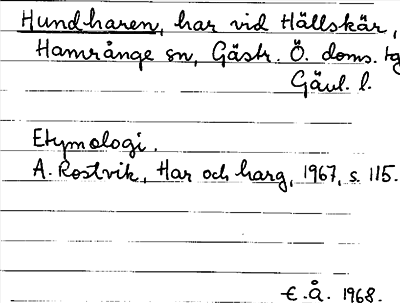 Hundharen, har vid Hällskär,
Hamrånge sn, Gästr. Ö. doms. tg
Gävl. l.
Etymologi.
A. Rostvik, Har och harg, 1967, s. 115.
E.Å. 1968.